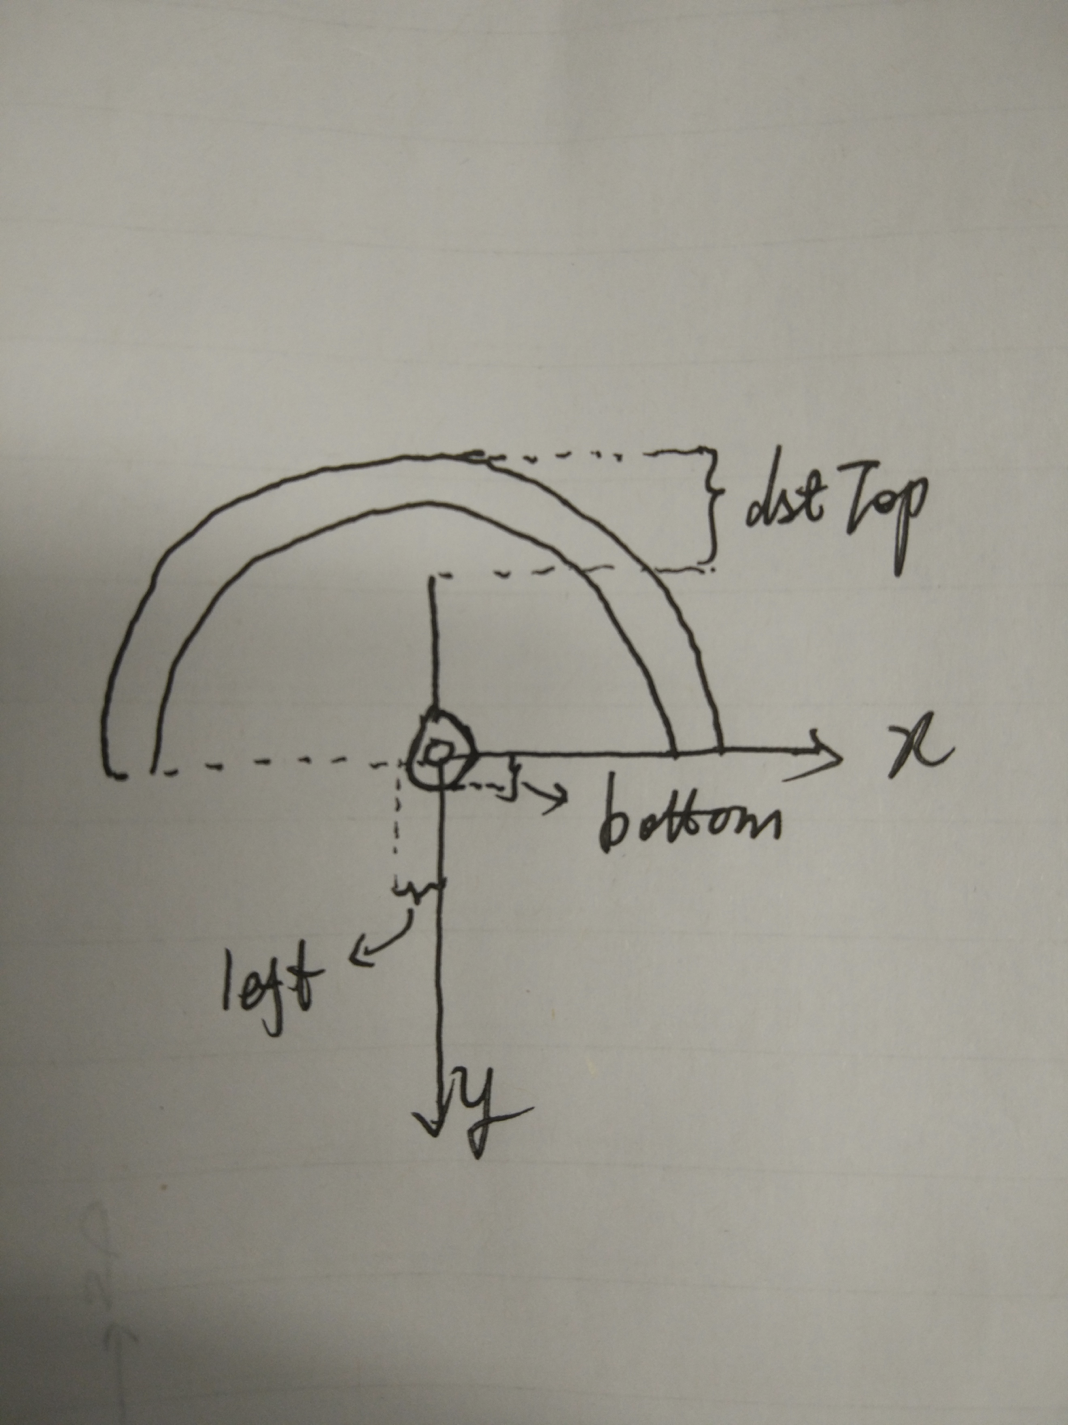 dst Top
x
bottom
left
y